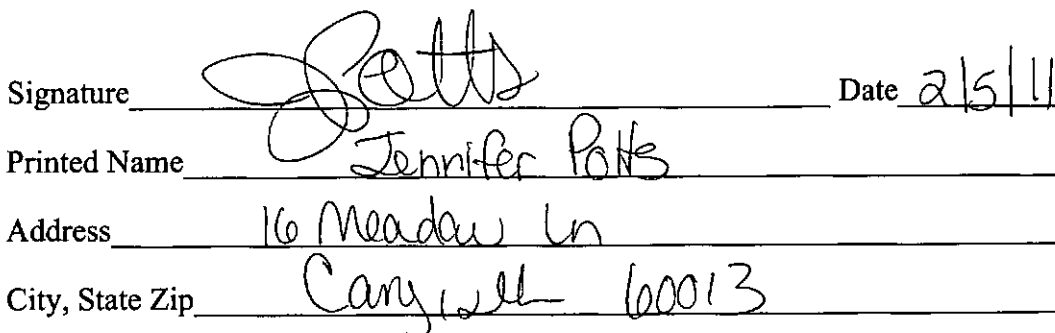 Signature JPotts Date 2/5/11
Printed Name Jennifer Potts
Address 16 Meadow Ln
City, State Zip Cary, Ill 60013